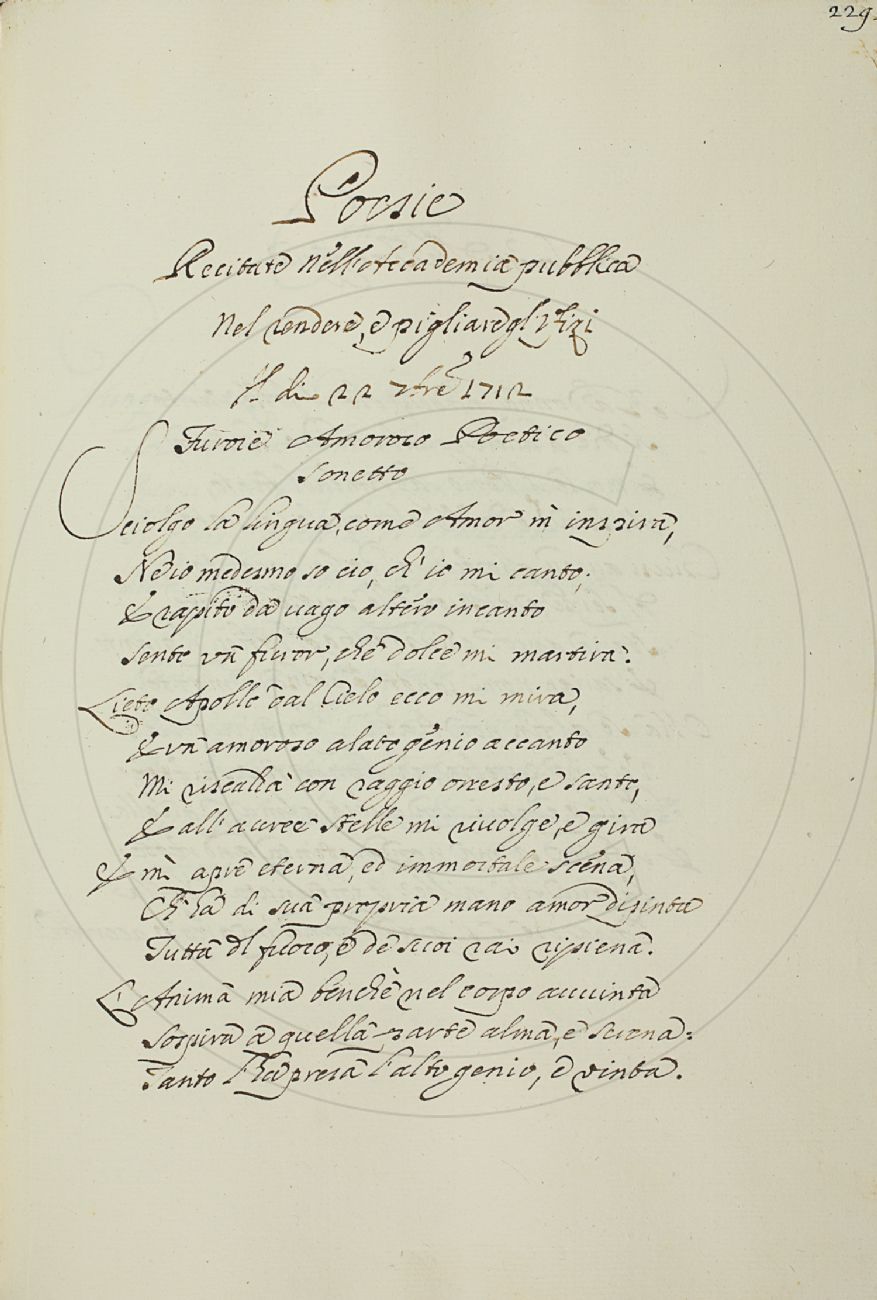 229.
Poesie
Recitate nell'Accademia pubblica
Nel rendere, e pigliare gl'Ufizi
Il dì 22 7bre 1712
Furore Amoroso Poetico
Sonetto
Sciolgo la lingua, come Amor m'inspira,
Ne io medesmo so cio, ch'io mi canto;
E rapito da vago altero incanto
Sento un furor, che dolce mi martira.
Lieto Apollo dal Cielo ecco mi mira,
E un amoroso alato genio accanto
Mi riscalda con raggio onesto, e santo,
E all'auree stelle mi rivolge, e gira
E m'apre eterna, ed immortale scena,
Ch'ha di sua propria mano amor dipinta
Tutta di fuoco, e de suoi rai ripiena.
L'Anima mia benchè nel corpo avvinta
Sospira a quella parte alma, e serena:
Tanto l'ha presa l'alto genio, e vinta.